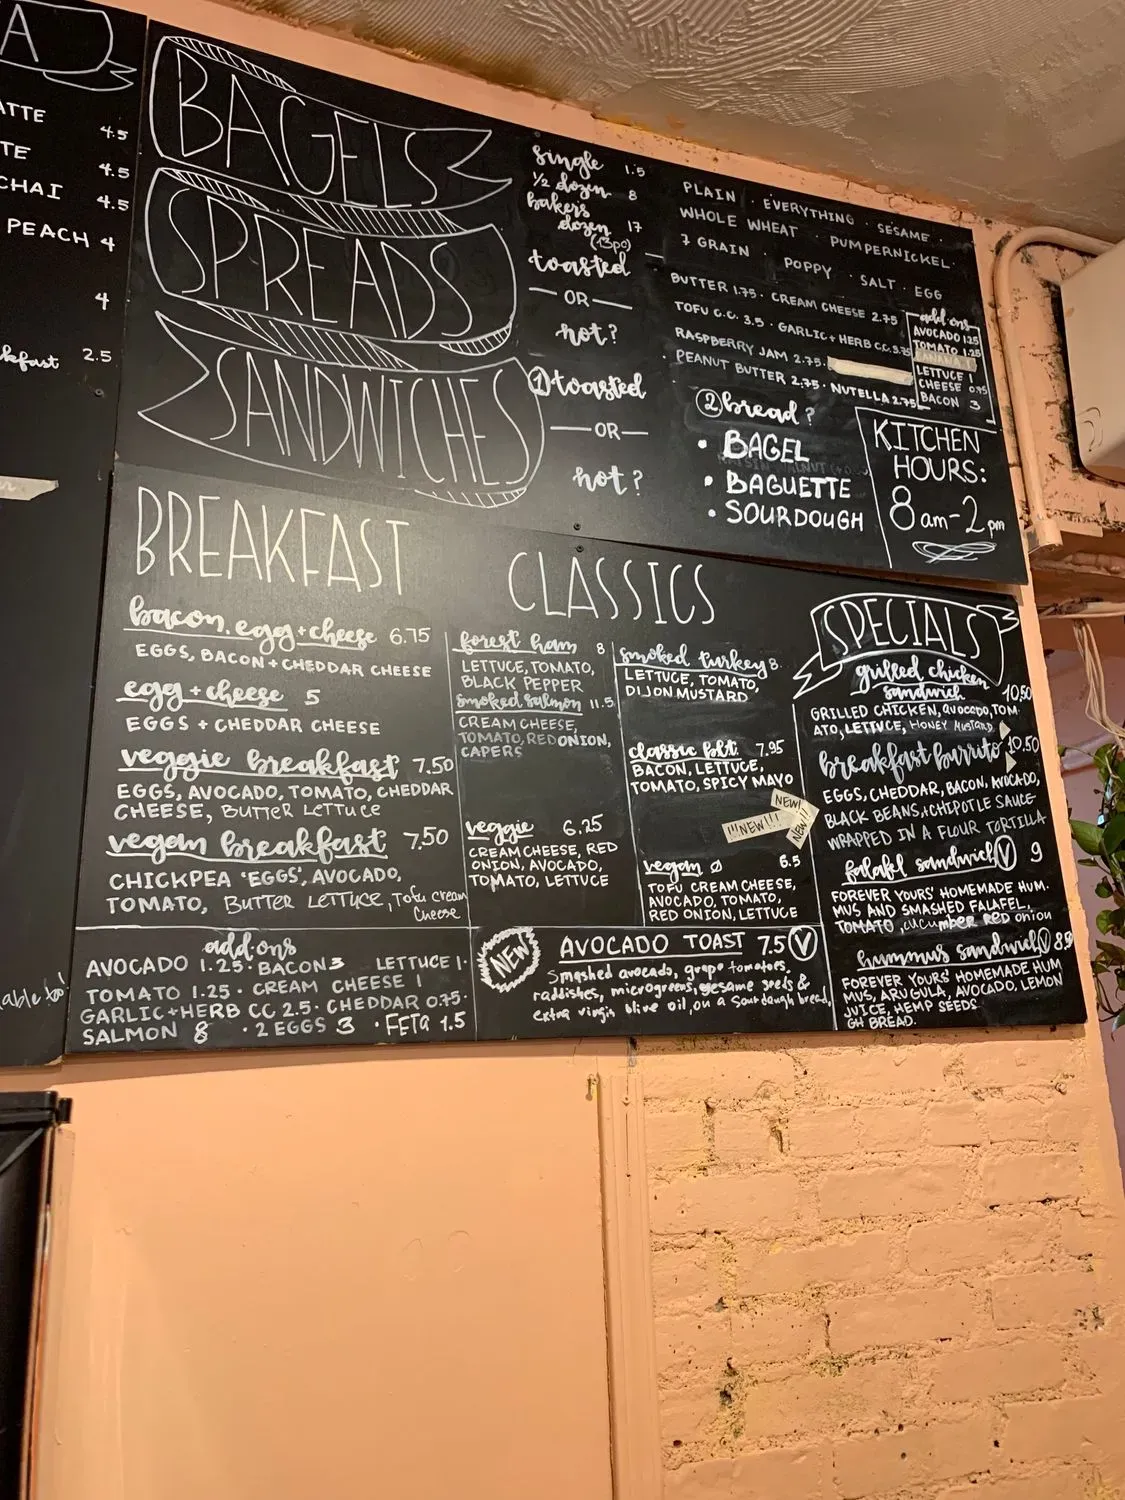 A
ATTE 4.5
TE 4.5
CHAI 4.5
PEACH 4
4
kfast 2.5
able too!
BAGELS
SPREADS
SANDWICHES
single 1.5
1/2 dozen 8
bakers
dozen 17
(13pc)
toasted
OR
hot?
PLAIN · EVERYTHING · SESAME ·
WHOLE WHEAT · PUMPERNICKEL
7 GRAIN · POPPY · SALT · EGG
BUTTER 1.75 · CREAM CHEESE 2.75
TOFU C.C. 3.5 · GARLIC + HERB CC. 3.75
RASPBERRY JAM 2.75 ·
· PEANUT BUTTER 2.75 · NUTELLA 2.75
add·ons
AVOCADO 1.25
TOMATO 1.25
LETTUCE 1
CHEESE 0.75
BACON 3
① toasted
OR
hot?
② bread?
• BAGEL
• BAGUETTE
• SOURDOUGH
KITCHEN
HOURS:
8 am - 2 pm
BREAKFAST
bacon, egg + cheese 6.75
EGGS, BACON + CHEDDAR CHEESE
egg + cheese 5
EGGS + CHEDDAR CHEESE
veggie breakfast 7.50
EGGS, AVOCADO, TOMATO, CHEDDAR
CHEESE, BUTTER LETTUCE
vegan breakfast 7.50
CHICKPEA 'EGGS', AVOCADO,
TOMATO, BUTTER LETTUCE, Tofu cream
Cheese
add·ons
AVOCADO 1.25 · BACON 3 LETTUCE 1 ·
TOMATO 1.25 · CREAM CHEESE 1
GARLIC + HERB CC 2.5 · CHEDDAR 0.75 ·
SALMON 8 · 2 EGGS 3 · FETA 1.5
CLASSICS
forest ham 8
LETTUCE, TOMATO,
BLACK PEPPER
smoked salmon 11.5
CREAM CHEESE,
TOMATO, RED ONION,
CAPERS
veggie 6.25
CREAM CHEESE, RED
ONION, AVOCADO,
TOMATO, LETTUCE
smoked turkey 8
LETTUCE, TOMATO,
DIJON MUSTARD
classic blt. 7.95
BACON, LETTUCE,
TOMATO, SPICY MAYO
NEW!
!!!NEW!!!
NEW!
vegan Ø 6.5
TOFU CREAM CHEESE,
AVOCADO, TOMATO,
RED ONION, LETTUCE
NEW
AVOCADO TOAST 7.5 Ⓥ
Smashed avocado, grape tomatoes,
raddishes, microgreens, sesame seeds &
extra virgin olive oil, on a sourdough bread,
SPECIALS
grilled chicken
sandwich 10.50
GRILLED CHICKEN, avocado, TOM-
ATO, LETTUCE, HONEY MUSTARD
breakfast burrito 10.50
EGGS, CHEDDAR, BACON, AVOCADO,
BLACK BEANS, + CHIPOTLE SAUCE
WRAPPED IN A FLOUR TORTILLA
falafel sandwich Ⓥ 9
FOREVER YOURS' HOMEMADE HUM-
MUS AND SMASHED FALAFEL,
TOMATO, cucumber RED onion
hummus sandwich Ⓥ
FOREVER YOURS' HOMEMADE HUM
MUS, ARUGULA, AVOCADO, LEMON
JUICE, HEMP SEEDS
GH BREAD.